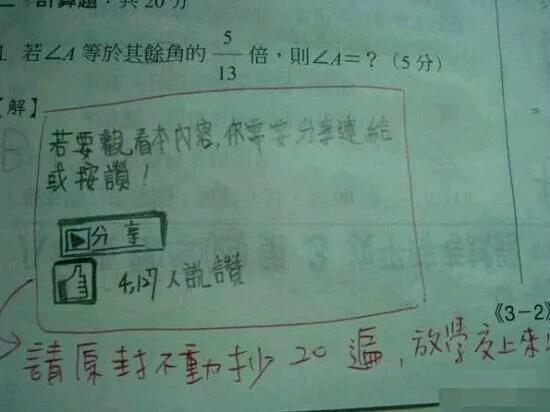 二、計算題：共20分
1. 若∠A等於其餘角的 5/13 倍，則∠A=？(5分)
【解】
若要觀看本內容,你需要分享連結
或按讚！
▶分享
4,127人說讚
《3-2》
請原封不動抄20遍,放學交上來!